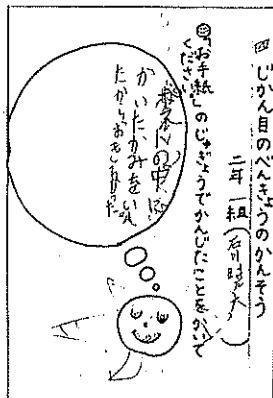 四じかん目のべんきょうのかんそう
二年一組(石川
◎「お手紙」のじゅぎょうでかんじたことをかいて
ください。
の中に
かいたかみをいれ
たからおもしろかった。